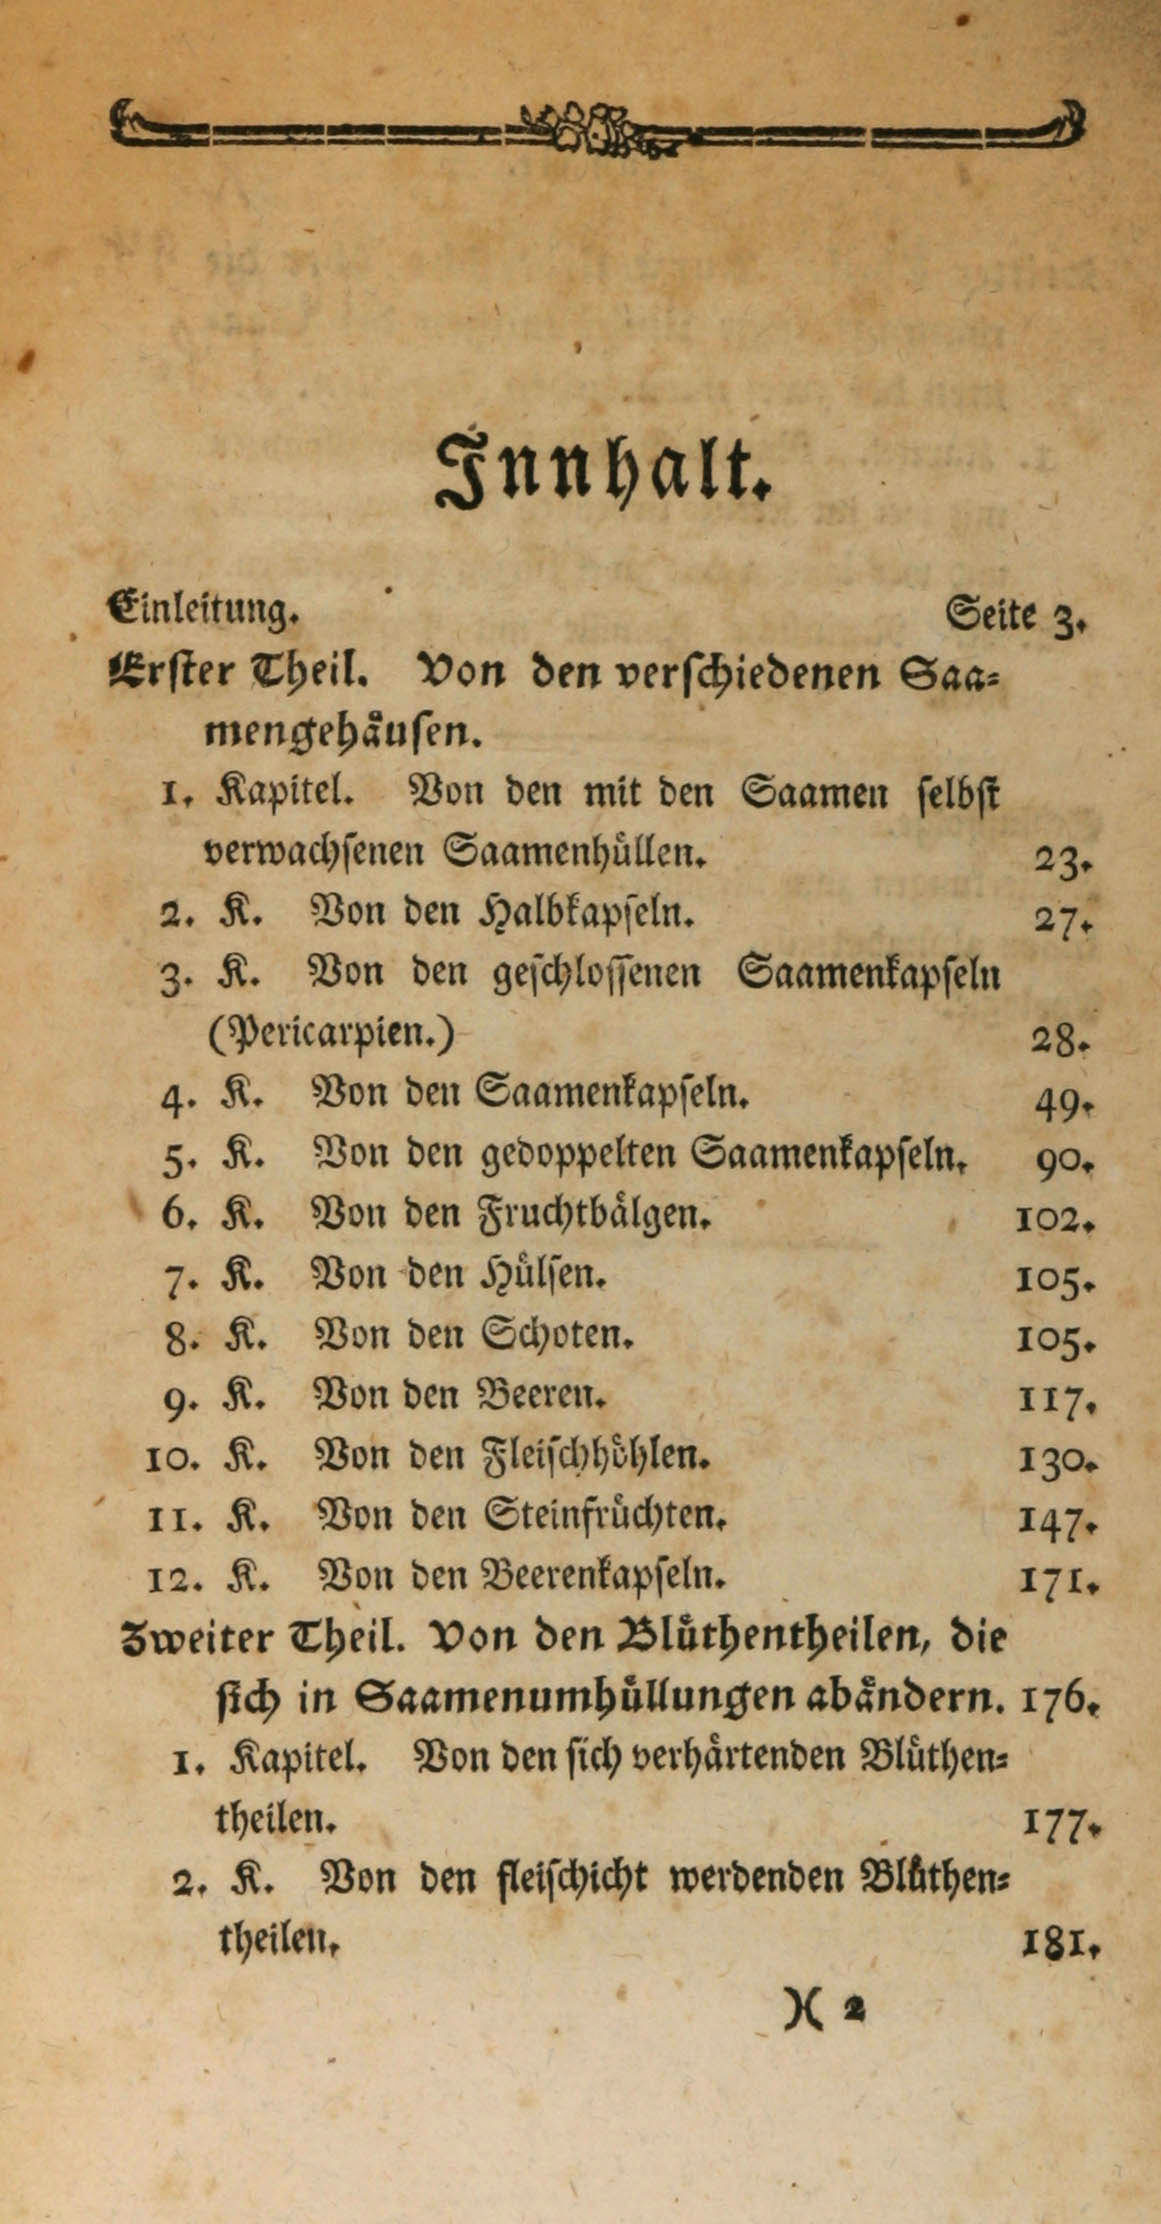 Innhalt.
Einleitung. Seite 3.
Erster Theil. Von den verschiedenen Saa⸗
mengehäusen.
1. Kapitel. Von den mit den Saamen selbst
verwachsenen Saamenhüllen. 23.
2. K. Von den Halbkapseln. 27.
3. K. Von den geschlossenen Saamenkapseln
(Pericarpien.) 28.
4. K. Von den Saamenkapseln. 49.
5. K. Von den gedoppelten Saamenkapseln. 90.
6. K. Von den Fruchtbälgen. 102.
7. K. Von den Hülsen. 105.
8. K. Von den Schoten. 105.
9. K. Von den Beeren. 117.
10. K. Von den Fleischhöhlen. 130.
11. K. Von den Steinfrüchten. 147.
12. K. Von den Beerenkapseln. 171.
Zweiter Theil. Von den Blüthentheilen, die
sich in Saamenumhüllungen abändern. 176.
1. Kapitel. Von den sich verhärtenden Blüthen⸗
theilen. 177.
2. K. Von den fleischicht werdenden Blüthen⸗
theilen. 181.
)( 2